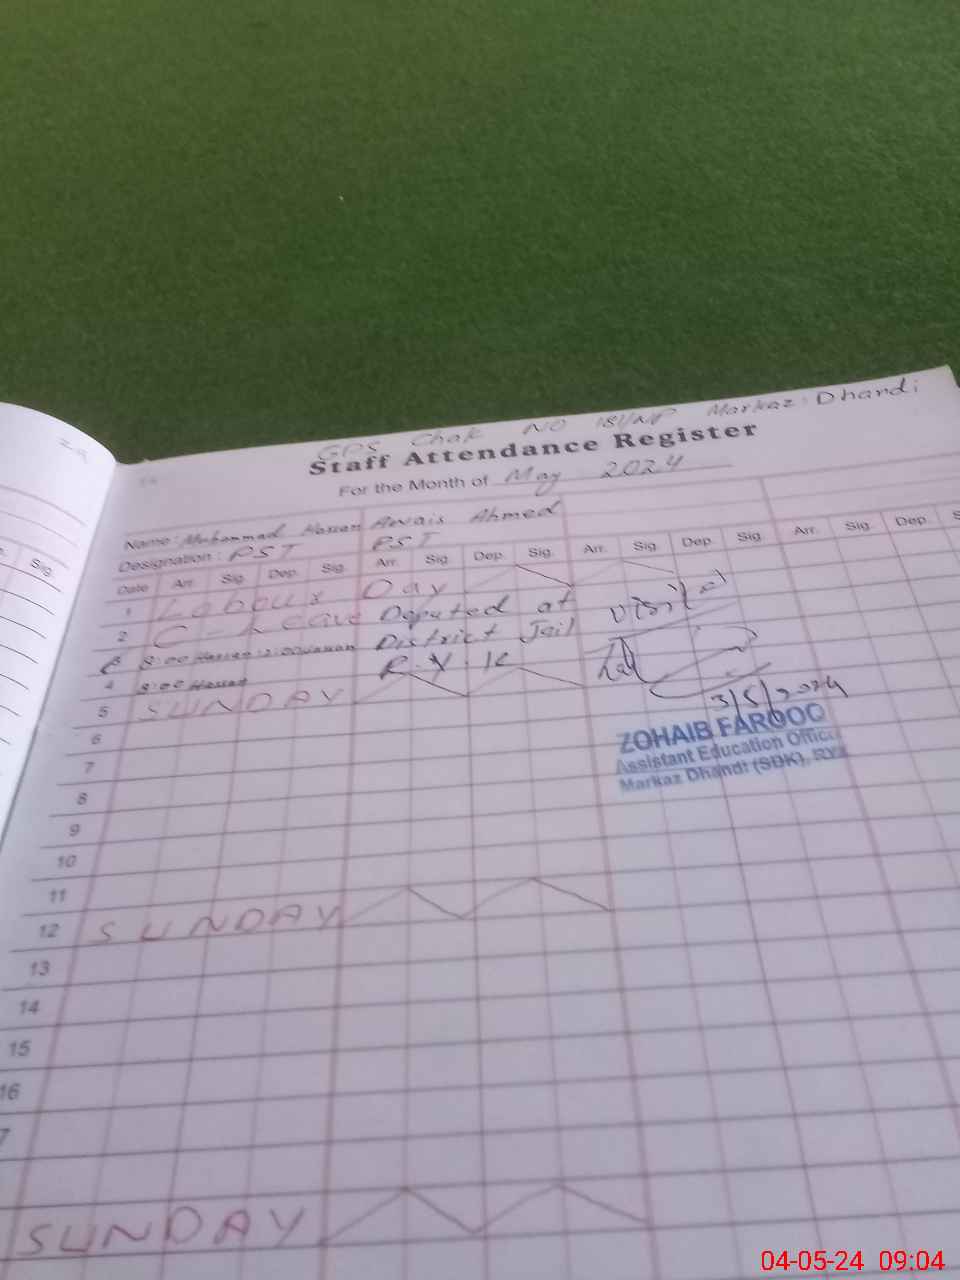 GPS Chak NO 181/NP Markaz: Dhandi
Staff Attendance Register
For the Month of May 2024
Name: Muhammad Hassan Awais Ahmed
Designation: PST PST
Date Arr. Sig. Dep. Sig. Arr. Sig. Dep. Sig. Arr. Sig. Dep. Sig. Arr. Sig. Dep.
1 Labour Day
2 C-Leave Deputed at
8:00 Hassan 2:00 Hassan District Jail
4 8:00 Hassan R.Y.K
5 SUNDAY
3/5/2024
ZOHAIB FAROOQ
Assistant Education Offic
Markaz Dhandi (SDK), RY
6
7
8
9
10
11
12 SUNDAY
13
14
15
16
7
SUNDAY
Sig
04-05-24 09:04